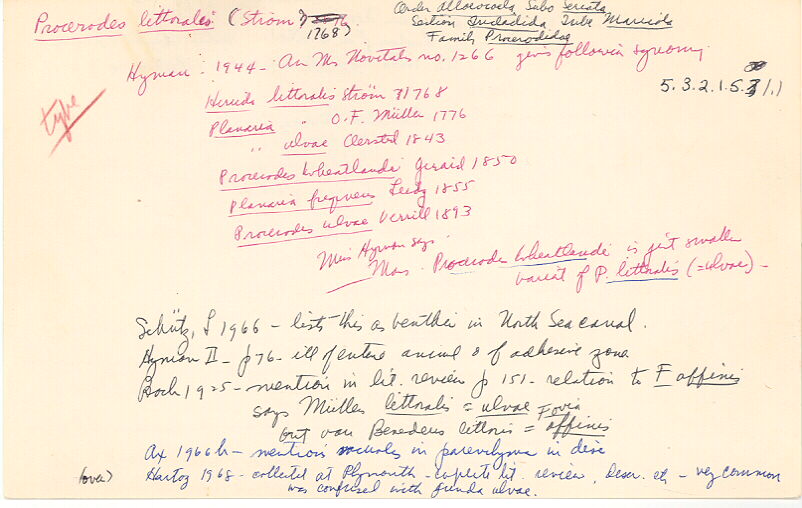 Procerodes littoralis (Ström 1768)
Order Alloeocoela, Subo Seriata
Section Tricladida Tribe Maricola
Family Procerodidae
5.3.2.1.5.3/1.1
type
Hyman: 1944 - Am Mus Novitates no. 1266 gives following synonomy
Hirudo littoralis Ström 1768
Planaria " O.F. Müller 1776
" ulvae Oersted 1843
Procerodes wheatlandi Girard 1850
Planaria frequens Leidy 1855
Procerodes ulvae Verrill 1893
Miss Hyman says
Mass. Procerodes wheatlandi is just smaller
variet of P. littoralis (=ulvae) -
Schütz, L 1966 - lists this as benthic in North Sea canal.
Hyman II - p 76 - ill of entire animal & of adhesive zone
Bock 1925 - mention in lit. review p 151 - relation to F affinis
says Müllers littoralis = ulvae
but van Benedens littoris = Fovia affinis
Ax 1966b - mention vacuoles in parenchyma in
(over) Hartog 1968 - collected at Plymouth - complete lit. review, descr. etc - very common
was confused with Gunda ulvae.